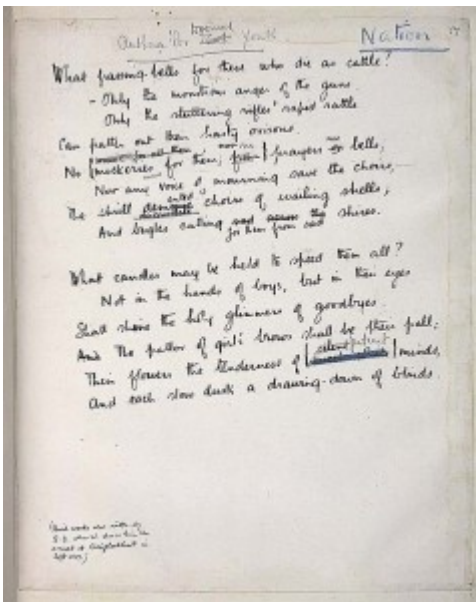 Anthem for Doomed Youth Nation
What passing-bells for these who die as cattle?
- Only the monstrous anger of the guns.
Only the stuttering rifles' rapid rattle
Can patter out their hasty orisons.
No mockeries for them; nor prayers nor bells,
Nor any voice of mourning save the choirs,—
The shrill demented choirs of wailing shells;
And bugles calling
for them from sad shires.
What candles may be held to speed them all?
Not in the hands of boys, but in their eyes
Shall shine the holy glimmers of goodbyes.
And the pallor of girls' brows shall be their pall;
Their flowers the tenderness of silent patient minds,
And each slow dusk a drawing-down of blinds.